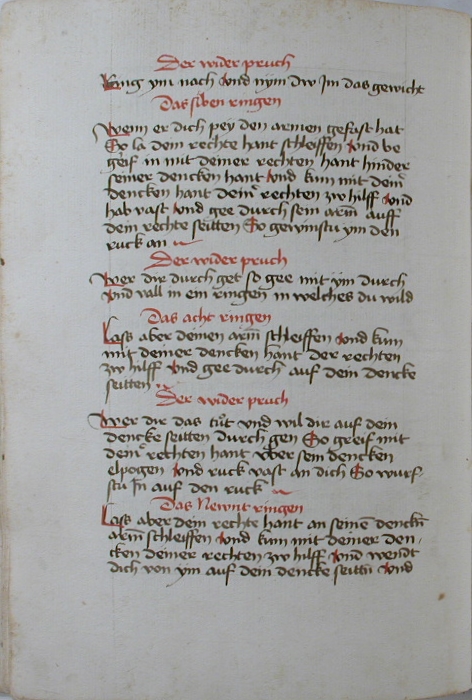 Der wider pruch
Ring ym nach vnd nym dw Im das gewicht
Das siben ringen
Wenn er dich pey den armen gefast hat
So la dein rechte hant schleiffen vnd be
greif in mit deiner rechten hant hinder
seiner dencken hant vnd kum mit deiner
dencken hant deiner rechten zw hilff vnd
hab vast vnd gee durch sein arm auff
dein rechte seitten So gewinstu ym den
ruck an
Der wider pruch
Wer dir durch get so gee mit ym durch
vnd vall in ein ringen in welches du wild
Das acht ringen
Lass aber deinen arm schleiffen vnd kum
mit deiner dencken hant der rechten
zw hilff vnd gee durch auf dein dencke
seitten
Der wider pruch
Wer dir das tut vnd wil dir auf dein
dencke seitten durch gen So greif mit
deiner rechten hant vber sein dencken
elpogen vnd ruck vast an dich So wurf-
stu In auf den ruck
Das Newnt ringen
Lass aber dein rechte hant an seinē denckn̄
arm schleiffen vnd kum mit deiner den-
cken deiner rechten zw hilff vnd wendt
dich von ym auf dein dencke seittn̄ vnd